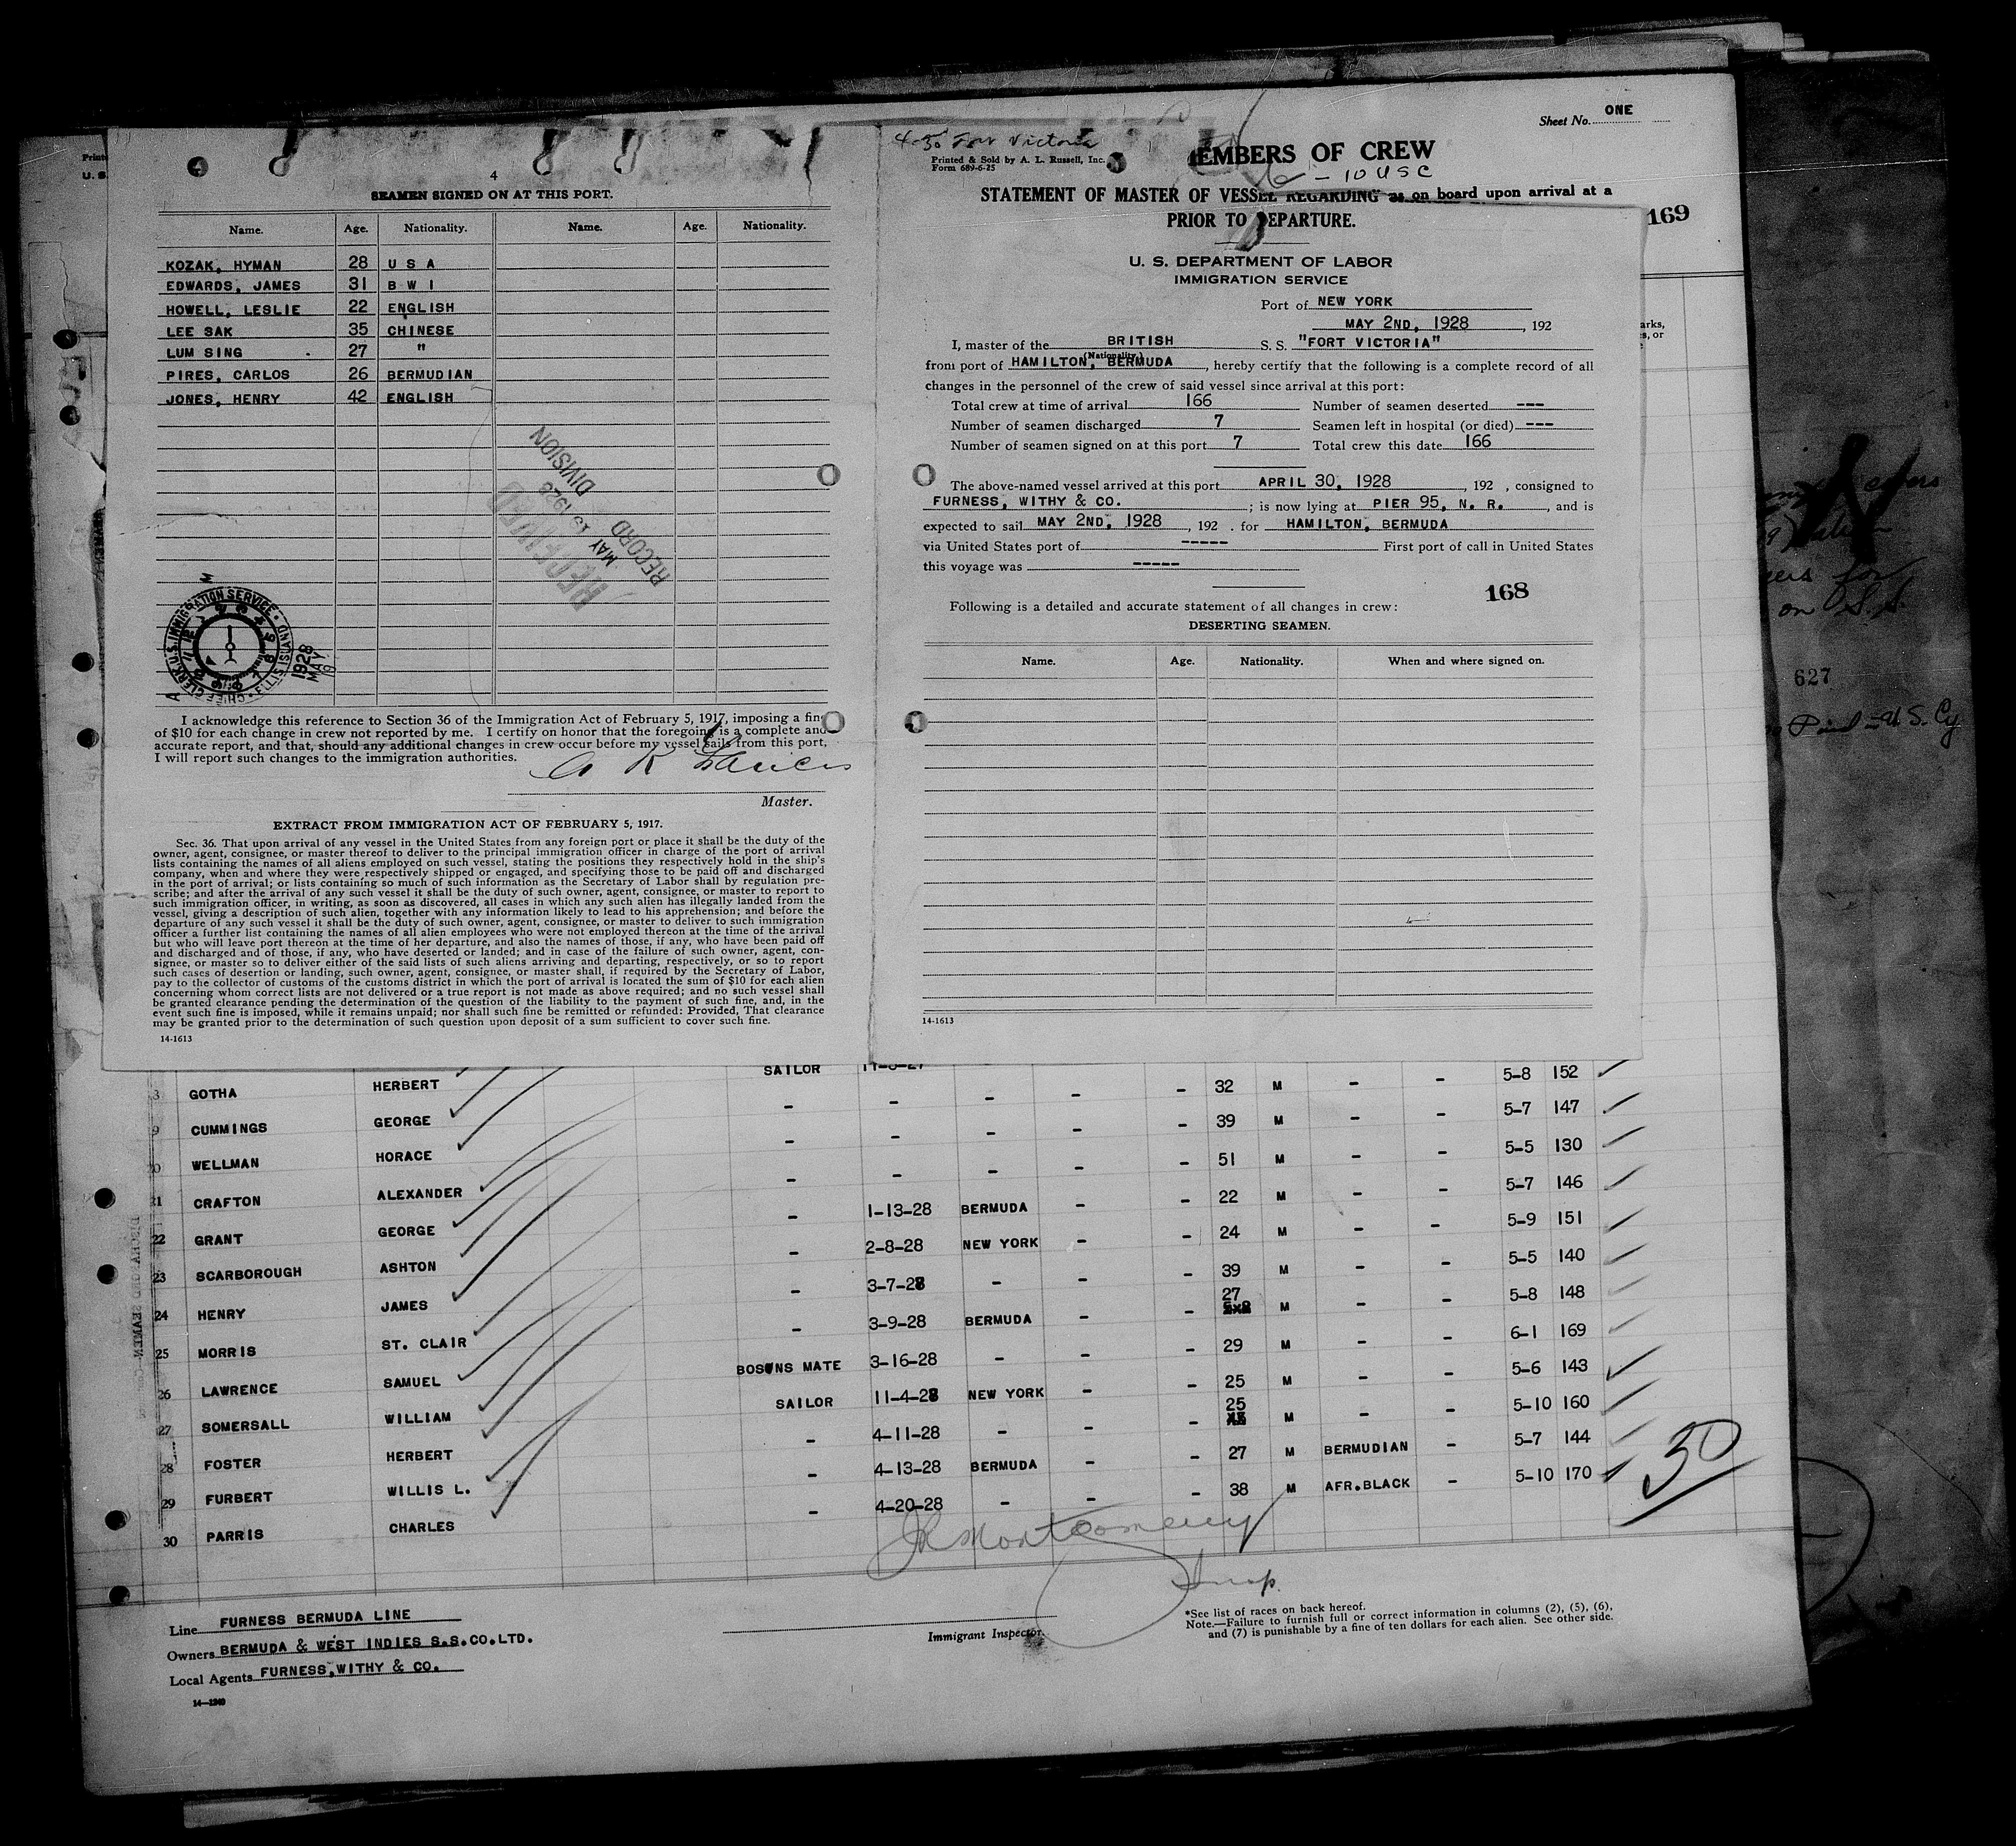 Sheet No. ONE
4-30 Fort Victoria
Printed & Sold by A. L. Russell, Inc.
Form 689-6-25
EMBERS OF CREW
- 10 USC
as on board upon arrival at a
169
4
SEAMEN SIGNED ON AT THIS PORT.
Name. Age. Nationality. Name. Age. Nationality.
KOZAK, HYMAN 28 U S A
EDWARDS, JAMES 31 B W I
HOWELL, LESLIE 22 ENGLISH
LEE SAK 35 CHINESE
LUM SING 27 "
PIRES, CARLOS 26 BERMUDIAN
JONES, HENRY 42 ENGLISH
RECEIVED
MAY 19 1928
RECORD DIVISION
CHIEF CLERK U.S. IMMIGRATION SERVICE · ELLIS ISLAND
1928 MAY
I acknowledge this reference to Section 36 of the Immigration Act of February 5, 1917, imposing a fin
of $10 for each change in crew not reported by me. I certify on honor that the foregoing is a complete and
accurate report, and that, should any additional changes in crew occur before my vessel sails from this port,
I will report such changes to the immigration authorities.
Master.
EXTRACT FROM IMMIGRATION ACT OF FEBRUARY 5, 1917.
Sec. 36. That upon arrival of any vessel in the United States from any foreign port or place it shall be the duty of the
owner, agent, consignee, or master thereof to deliver to the principal immigration officer in charge of the port of arrival
lists containing the names of all aliens employed on such vessel, stating the positions they respectively hold in the ship's
company, when and where they were respectively shipped or engaged, and specifying those to be paid off and discharged
in the port of arrival; or lists containing so much of such information as the Secretary of Labor shall by regulation pre-
scribe; and after the arrival of any such vessel it shall be the duty of such owner, agent, consignee, or master to report to
such immigration officer, in writing, as soon as discovered, all cases in which any such alien has illegally landed from the
vessel, giving a description of such alien, together with any information likely to lead to his apprehension; and before the
departure of any such vessel it shall be the duty of such owner, agent, consignee, or master to deliver to such immigration
officer a further list containing the names of all alien employees who were not employed thereon at the time of the arrival
but who will leave port thereon at the time of her departure, and also the names of those, if any, who have been paid off
and discharged and of those, if any, who have deserted or landed; and in case of the failure of such owner, agent, con-
signee, or master so to deliver either of the said lists of such aliens arriving and departing, respectively, or so to report
such cases of desertion or landing, such owner, agent, consignee, or master shall, if required by the Secretary of Labor,
pay to the collector of customs of the customs district in which the port of arrival is located the sum of $10 for each alien
concerning whom correct lists are not delivered or a true report is not made as above required; and no such vessel shall
be granted clearance pending the determination of the question of the liability to the payment of such fine, and, in the
event such fine is imposed, while it remains unpaid; nor shall such fine be remitted or refunded: Provided, That clearance
may be granted prior to the determination of such question upon deposit of a sum sufficient to cover such fine.
14-1613
STATEMENT OF MASTER OF VESSEL REGARDING
PRIOR TO DEPARTURE.
U. S. DEPARTMENT OF LABOR
IMMIGRATION SERVICE
Port of NEW YORK
MAY 2ND, 1928, 192
I, master of the BRITISH S. S. "FORT VICTORIA"
(Nationality)
from port of HAMILTON, BERMUDA, hereby certify that the following is a complete record of all
changes in the personnel of the crew of said vessel since arrival at this port:
Total crew at time of arrival 166 Number of seamen deserted ---
Number of seamen discharged 7 Seamen left in hospital (or died) ---
Number of seamen signed on at this port 7 Total crew this date 166
The above-named vessel arrived at this port APRIL 30, 1928, 192 , consigned to
FURNESS, WITHY & CO. ; is now lying at PIER 95, N. R. , and is
expected to sail MAY 2ND, 1928, 192 . for HAMILTON, BERMUDA
via United States port of ----- First port of call in United States
this voyage was -----
168
Following is a detailed and accurate statement of all changes in crew:
DESERTING SEAMEN.
Name. Age. Nationality. When and where signed on.
14-1613
SAILOR
GOTHA HERBERT - - - - - 32 M - - 5-8 152
CUMMINGS GEORGE - - - - - 39 M - - 5-7 147
WELLMAN HORACE - - - - - 51 M - - 5-5 130
21 CRAFTON ALEXANDER - 1-13-28 BERMUDA - - 22 M - - 5-7 146
22 GRANT GEORGE - 2-8-28 NEW YORK - - 24 M - - 5-9 151
23 SCARBOROUGH ASHTON - 3-7-28 - - - 39 M - - 5-5 140
24 HENRY JAMES - 3-9-28 BERMUDA - - 27 M - - 5-8 148
25 MORRIS ST. CLAIR BOSUNS MATE 3-16-28 - - - 29 M - - 6-1 169
26 LAWRENCE SAMUEL SAILOR 11-4-28 NEW YORK - - 25 M - - 5-6 143
27 SOMERSALL WILLIAM - 4-11-28 - - - 25 M - - 5-10 160
28 FOSTER HERBERT - 4-13-28 BERMUDA - - 27 M BERMUDIAN - 5-7 144
29 FURBERT WILLIS L. - 4-20-28 - - - 38 M AFR.BLACK - 5-10 170
30 PARRIS CHARLES
30
JR Montgomery
Insp.
Line FURNESS BERMUDA LINE
Owners BERMUDA & WEST INDIES S.S.CO.LTD.
Local Agents FURNESS, WITHY & CO.
Immigrant Inspector.
*See list of races on back hereof.
Note.—Failure to furnish full or correct information in columns (2), (5), (6),
and (7) is punishable by a fine of ten dollars for each alien. See other side.
on S.S.
627
Paid - U.S. Cy